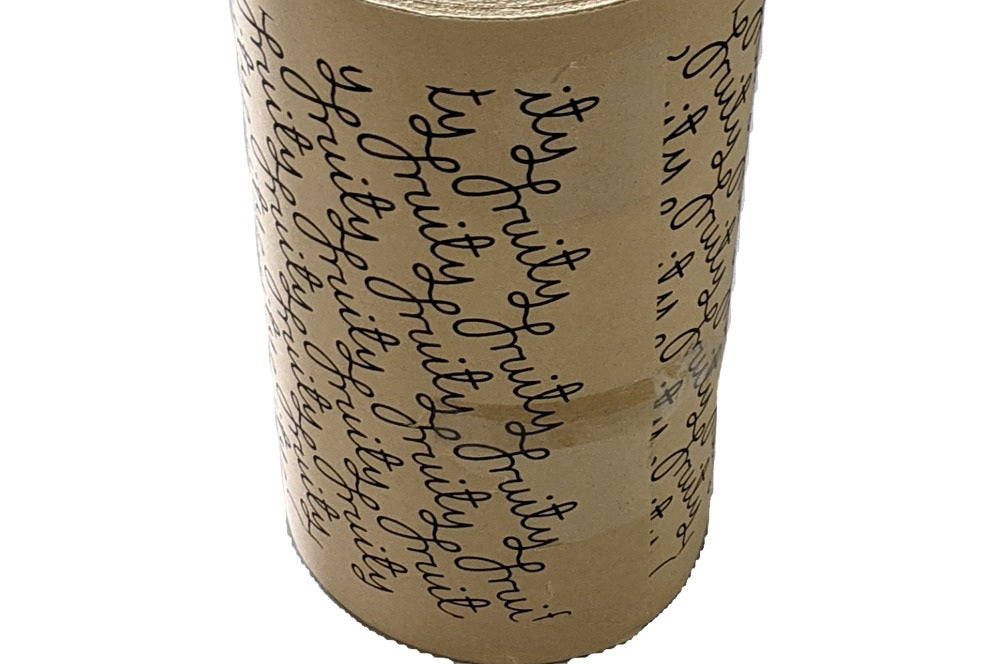 fruity fruity fruity fruity
y fruity fruity fruity fruity
ty fruity fruity fruity fruit
ity fruity fruity fruity fruit
fruity fruity fruity fruity